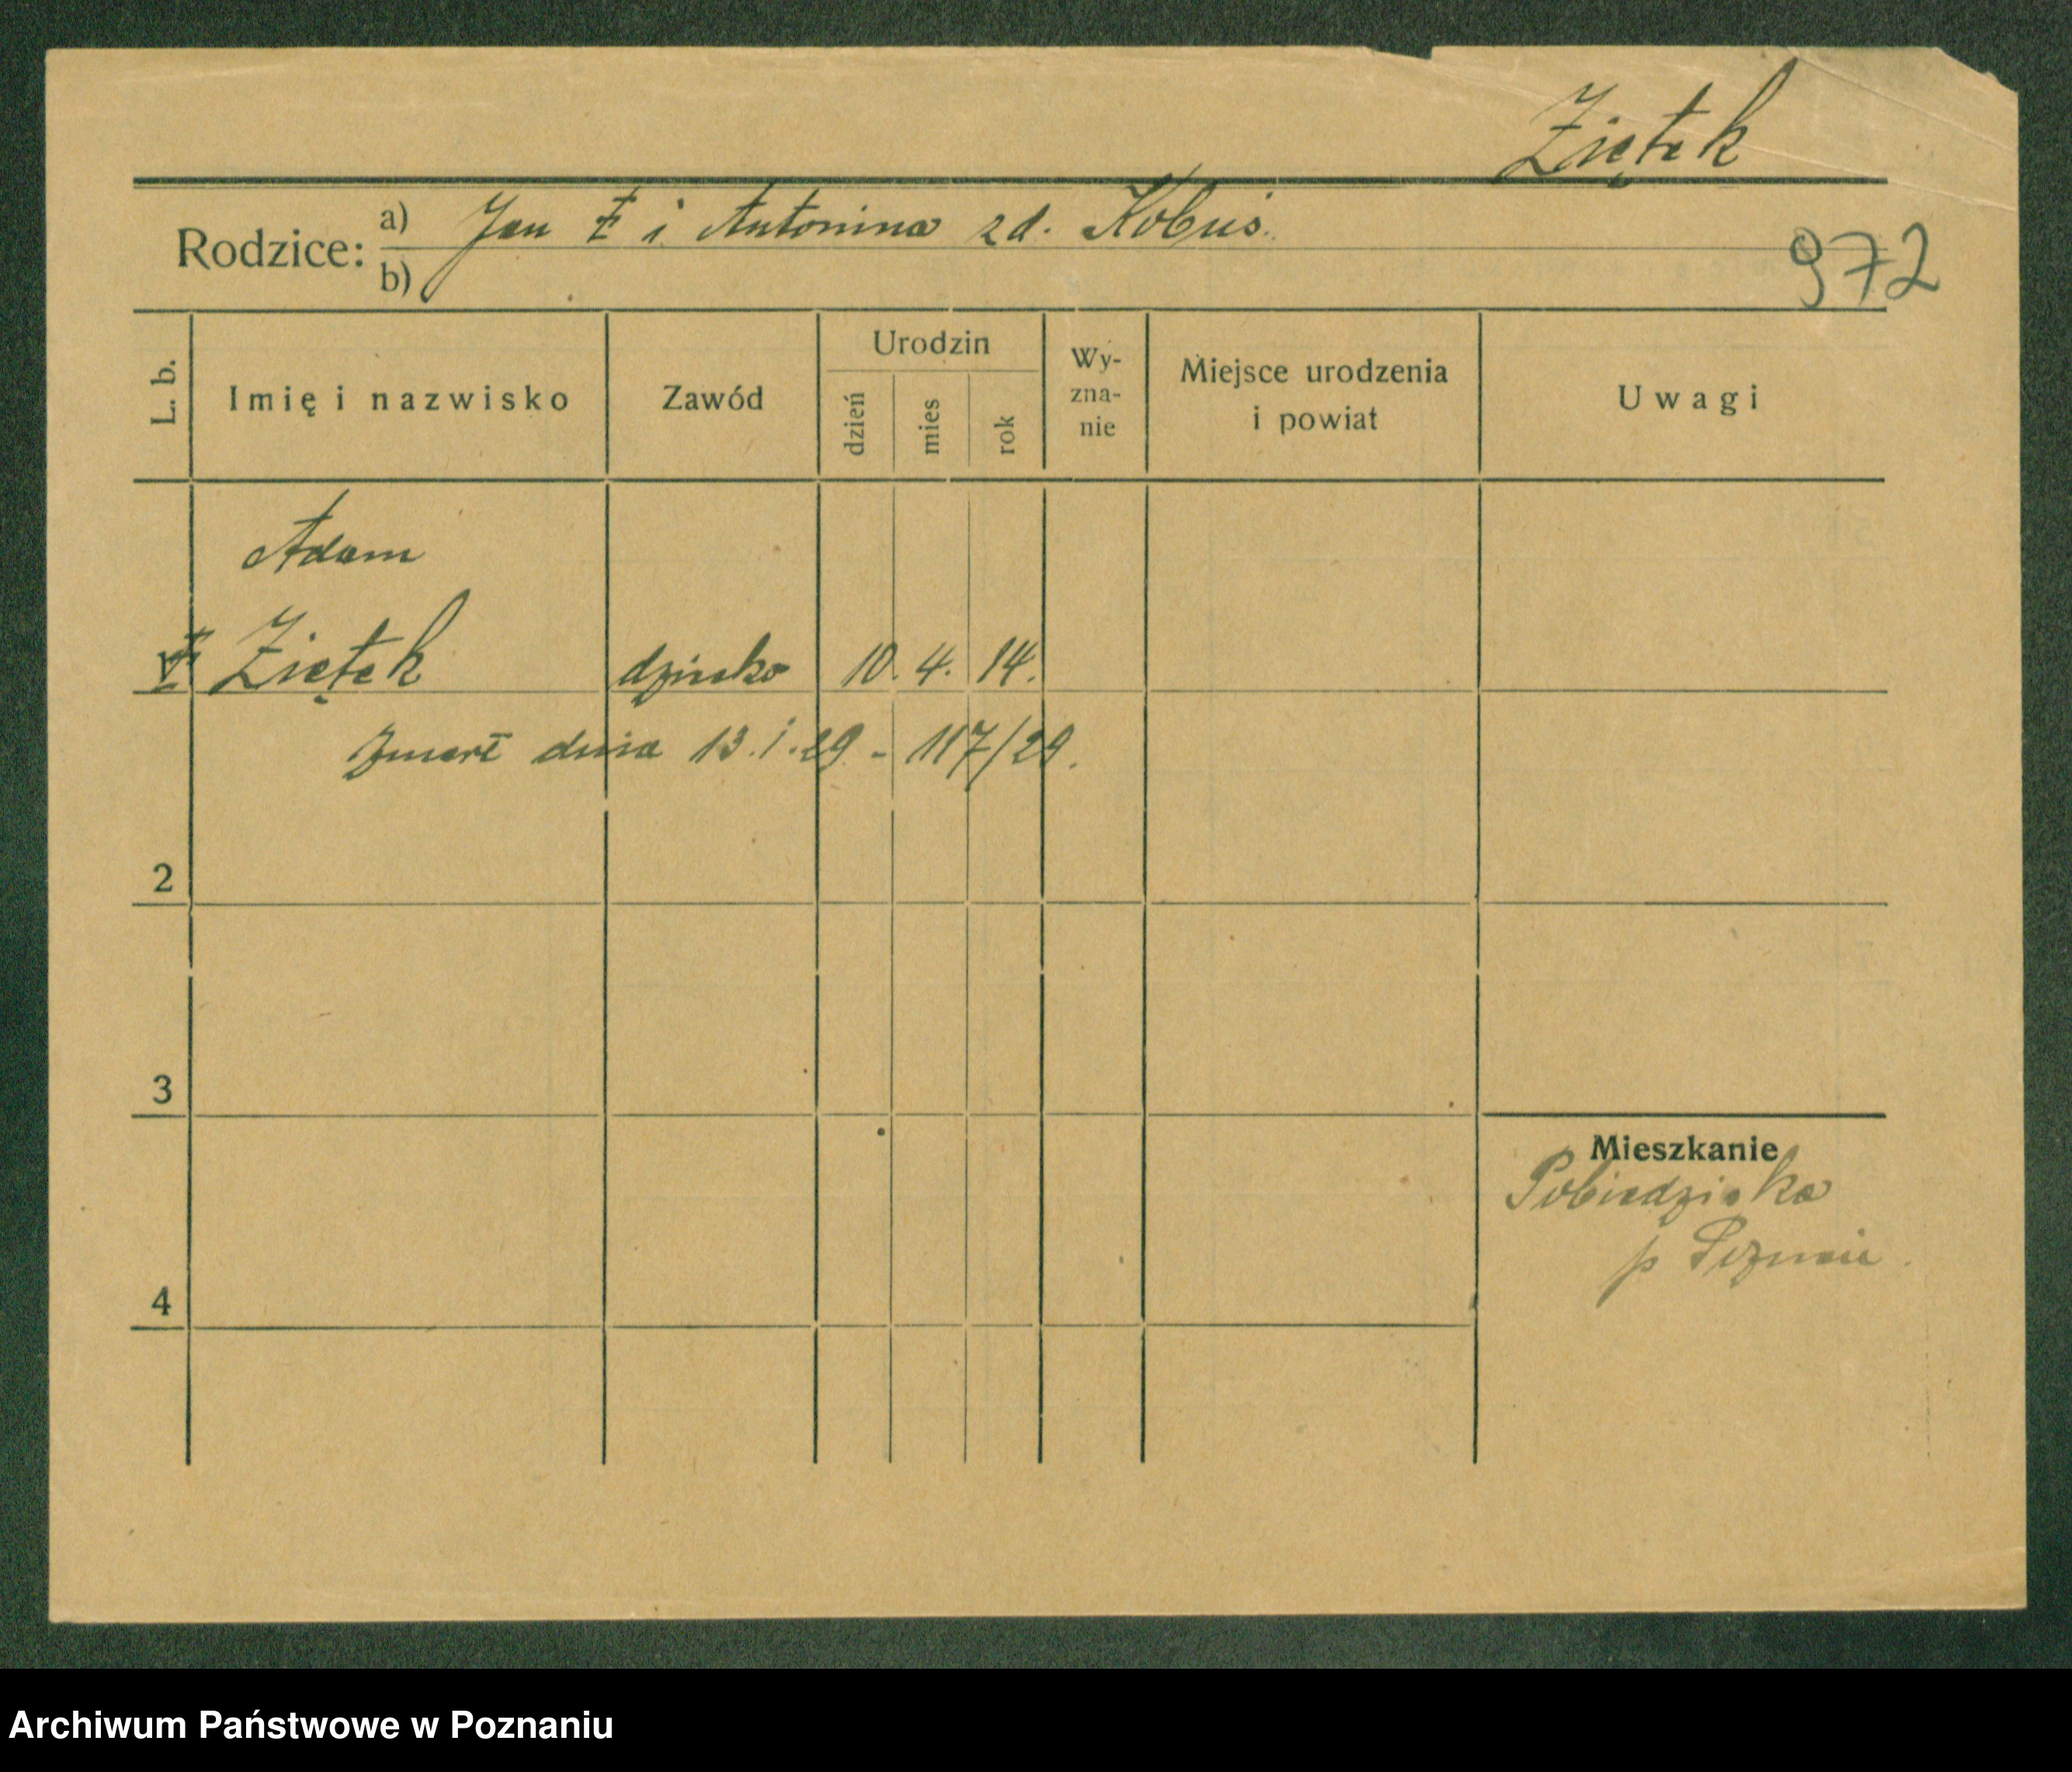 Ziętek
Rodzice: a) Jan Z i Antonina zd. Kobuś.
b)
972
L. b.
Imię i nazwisko
Zawód
Urodzin
dzień
mies
rok
Wy-
zna-
nie
Miejsce urodzenia
i powiat
Uwagi
Adam
Ziętek dziecko 10. 4. 14.
Zmarł dnia 13.1.29 - 117/29.
2
3
Mieszkanie
Pobiedziska
p Poznań
4
Archiwum Państwowe w Poznaniu